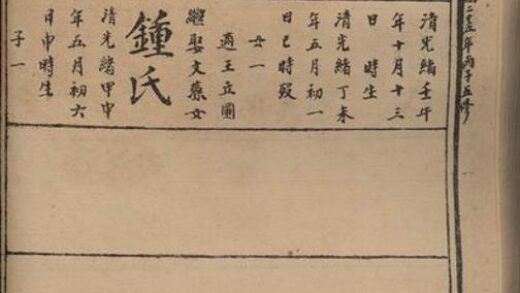 二五年丙子五修
清光緒壬午
年十月十三
日 時生
清光緒丁未
年五月初一
日巳時歿
女一
適王立圓
繼娶文藻女
鍾氏
清光緒甲申
年五月初六
日申時生
子一